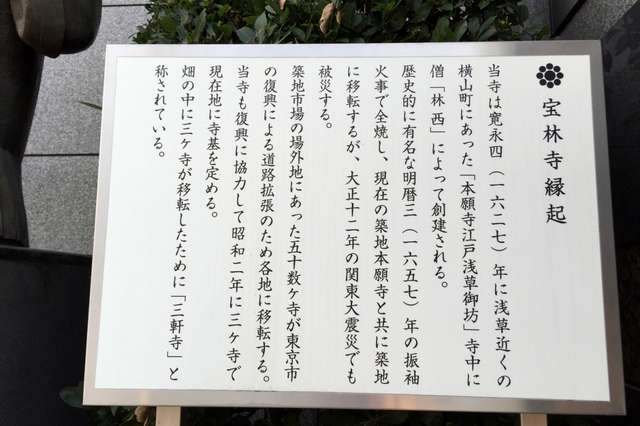 宝林寺縁起
当寺は寛永四（一六二七）年に浅草近くの
横山町にあった「本願寺江戸浅草御坊」寺中に
僧「林西」によって創建される。
歴史的に有名な明暦三（一六五七）年の振袖
火事で全焼し、現在の築地本願寺と共に築地
に移転するが、大正十二年の関東大震災でも
被災する。
築地市場の場外地にあった五十数ヶ寺が東京市
の復興による道路拡張のため各地に移転する。
当寺も復興に協力して昭和二年に三ヶ寺で
現在地に寺基を定める。
畑の中に三ヶ寺が移転したために「三軒寺」と
称されている。